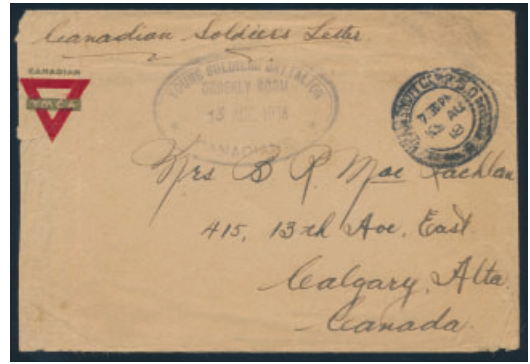 Canadian Soldiers Letter.
CANADIAN
Y.M.C.A
YOUNG SOLDIERS BATTALION
ORDERLY ROOM
15 AUG. 1918
CANADIANS
7.30 PM
AU
18
Mrs B R. Mac Lachlan
415, 13th Ave. East.
Calgary, Alta.
Canada.